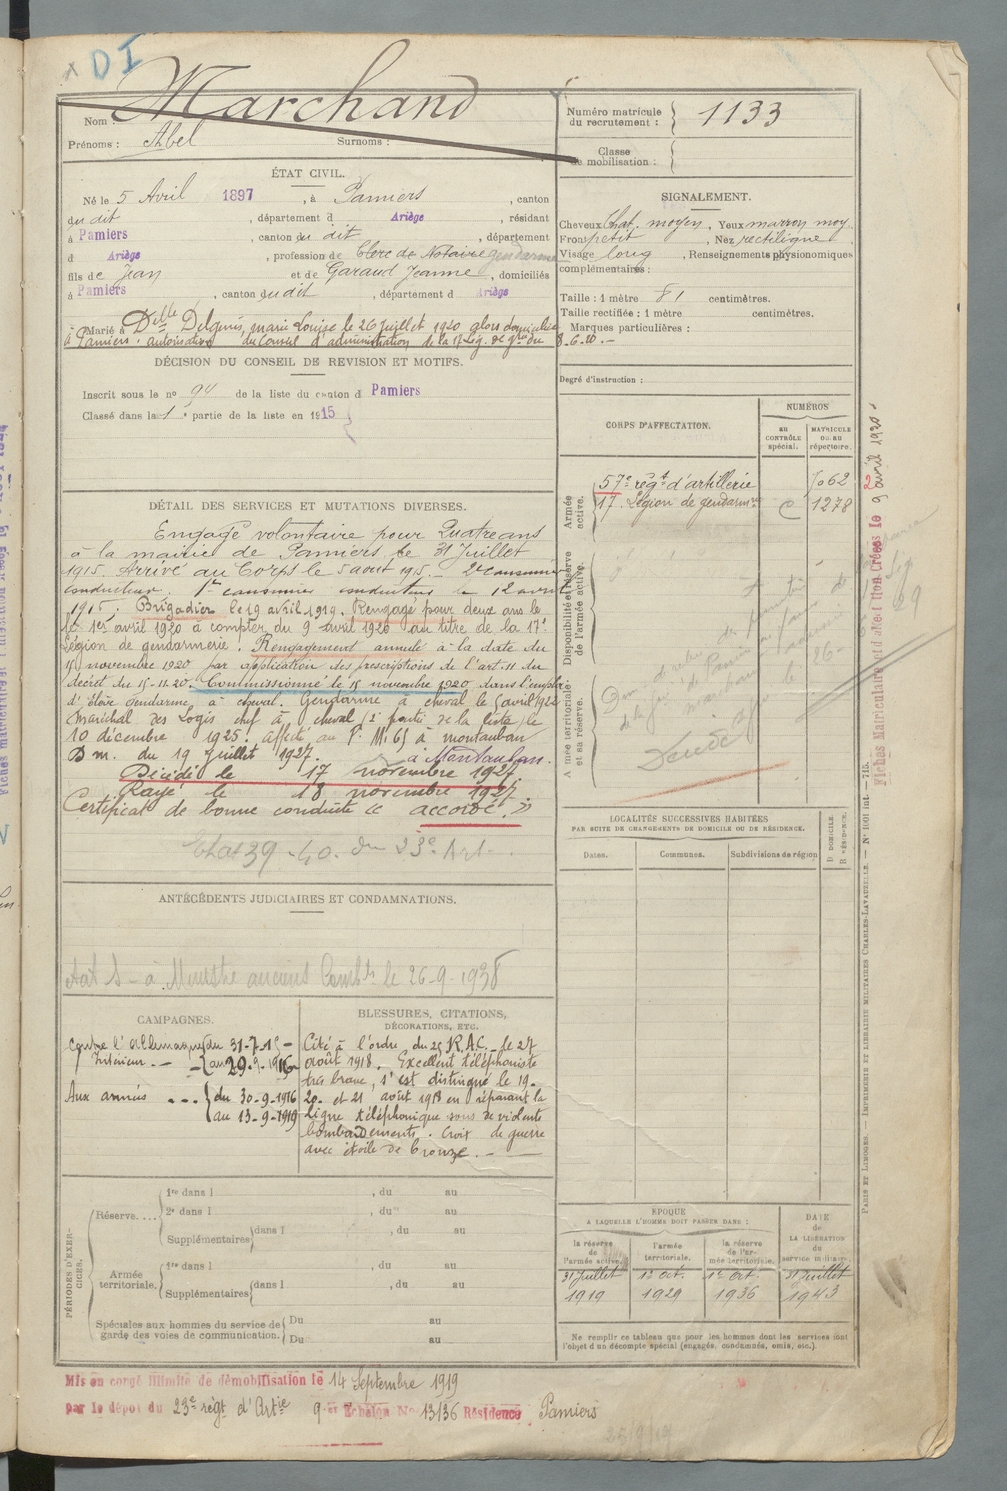 D I
Marchand
Nom :
Prénoms : Abel Surnoms :
Numéro matricule du recrutement : 1133
Classe de mobilisation :
ÉTAT CIVIL.
Né le 5 Avril 1897, à Pamiers, canton
du dit, département d Ariège, résidant
à Pamiers, canton du dit, département
d Ariège, profession de Clerc de Notaire gendarme
fils de Jean et de Garaud Jeanne, domiciliés
à Pamiers, canton du dit, département d Ariège
Marié à Delle Delguis, marie Louise le 26 Juillet 1920 alors domiciliée
à Pamiers. autorisation du Conseil d'administration de la 17 Lég. de gdrie du 8.6.20.-
SIGNALEMENT.
Cheveux Chat. moyen, Yeux marron moy.
Front petit, Nez rectiligne,
Visage long, Renseignements physionomiques
complémentaires :
Taille : 1 mètre 81 centimètres.
Taille rectifiée : 1 mètre centimètres.
Marques particulières :
Degré d'instruction :
DÉCISION DU CONSEIL DE REVISION ET MOTIFS.
Inscrit sous le n° 94 de la liste du canton d Pamiers
Classé dans la 1e partie de la liste en 1915
CORPS D'AFFECTATION.
NUMÉROS
au CONTRÔLE spécial.
MATRICULE ou au répertoire.
Armée active.
57e régt d'artillerie 7062
17. Légion de gendarmie C 1278
Disponibilité et réserve de l'armée active.
Armée territoriale et sa réserve.
DÉTAIL DES SERVICES ET MUTATIONS DIVERSES.
Engagé volontaire pour Quatre ans
à la mairie de Pamiers le 31 Juillet
1915. Arrivé au Corps le 5 août 1915. - 2e canonnier
conducteur. 1er canonnier conducteur le 12 avril
1916. Brigadier le 19 avril 1919. Rengagé pour deux ans le
1er avril 1920 à compter du 9 avril 1920 au titre de la 17e
Légion de gendarmerie. Rengagement annulé à la date du
15 novembre 1920 par application des prescriptions de l'art. 11 du
décret du 15-11-20. Commissionné le 15 novembre 1920 dans l'emploi
d'élève Gendarme à cheval. Gendarme à cheval le 5 avril 1922
Maréchal des Logis chef à cheval (2e partie de la liste) le
10 décembre 1925. affecté au P. M. 65 à montauban
D m. du 19 Juillet 1927. à Montauban.
Décédé le 17 novembre 1927.
Rayé le 18 novembre 1927.
Certificat de bonne conduite « accordé. »
Etat 39-40. du 23e Art.
ANTÉCÉDENTS JUDICIAIRES ET CONDAMNATIONS.
Etat S - a. Ministre anciens Combts le 26-9-1938
LOCALITÉS SUCCESSIVES HABITÉES
PAR SUITE DE CHANGEMENTS DE DOMICILE OU DE RÉSIDENCE.
Dates. Communes. Subdivisions de région
D DOMICILE. R RÉSIDENCE.
CAMPAGNES.
Contre l'Allemagne du 31-7-15 -
Intérieur. - au 29-9-1916
Aux armées ... du 30-9-1916
au 13-9-1919
BLESSURES, CITATIONS,
DÉCORATIONS, ETC.
Cité à l'ordre du 23 R.A.C. le 27
août 1918. Excellent téléphoniste
très brave, s'est distingué le 19.
20. et 21 août 1918 en réparant la
ligne téléphonique sous de violents
bombardements. Croix de guerre
avec étoile de bronze.
PÉRIODES D'EXERCICES.
Réserve.... 1re dans l , du au
2e dans l , du au
Supplémentaires dans l , du au
Armée territoriale. 1re dans l , du au
Supplémentaires dans l , du au
Spéciales aux hommes du service de garde des voies de communication. Du au
Du au
ÉPOQUE
A LAQUELLE L'HOMME DOIT PASSER DANS :
la réserve de l'armée active.
l'armée territoriale.
la réserve de l'armée territoriale.
DATE de LA LIBÉRATION du service militaire.
31 Juillet 1er Oct. 1er Oct. 31 Juillet
1919 1929 1936 1943
Ne remplir ce tableau que pour les hommes dont les services font
l'objet d'un décompte spécial (engagés, condamnés, omis, etc.).
Mis en congé illimité de démobilisation le 14 Septembre 1919
par le dépôt du 23e régt d'Artie 9e Echelon No 13136 Résidence Pamiers
25/9/19
PARIS ET LIMOGES. — IMPRIMERIE ET LIBRAIRIE MILITAIRES CHARLES-LAVAUZELLE. — N° 1001 int. — 715.